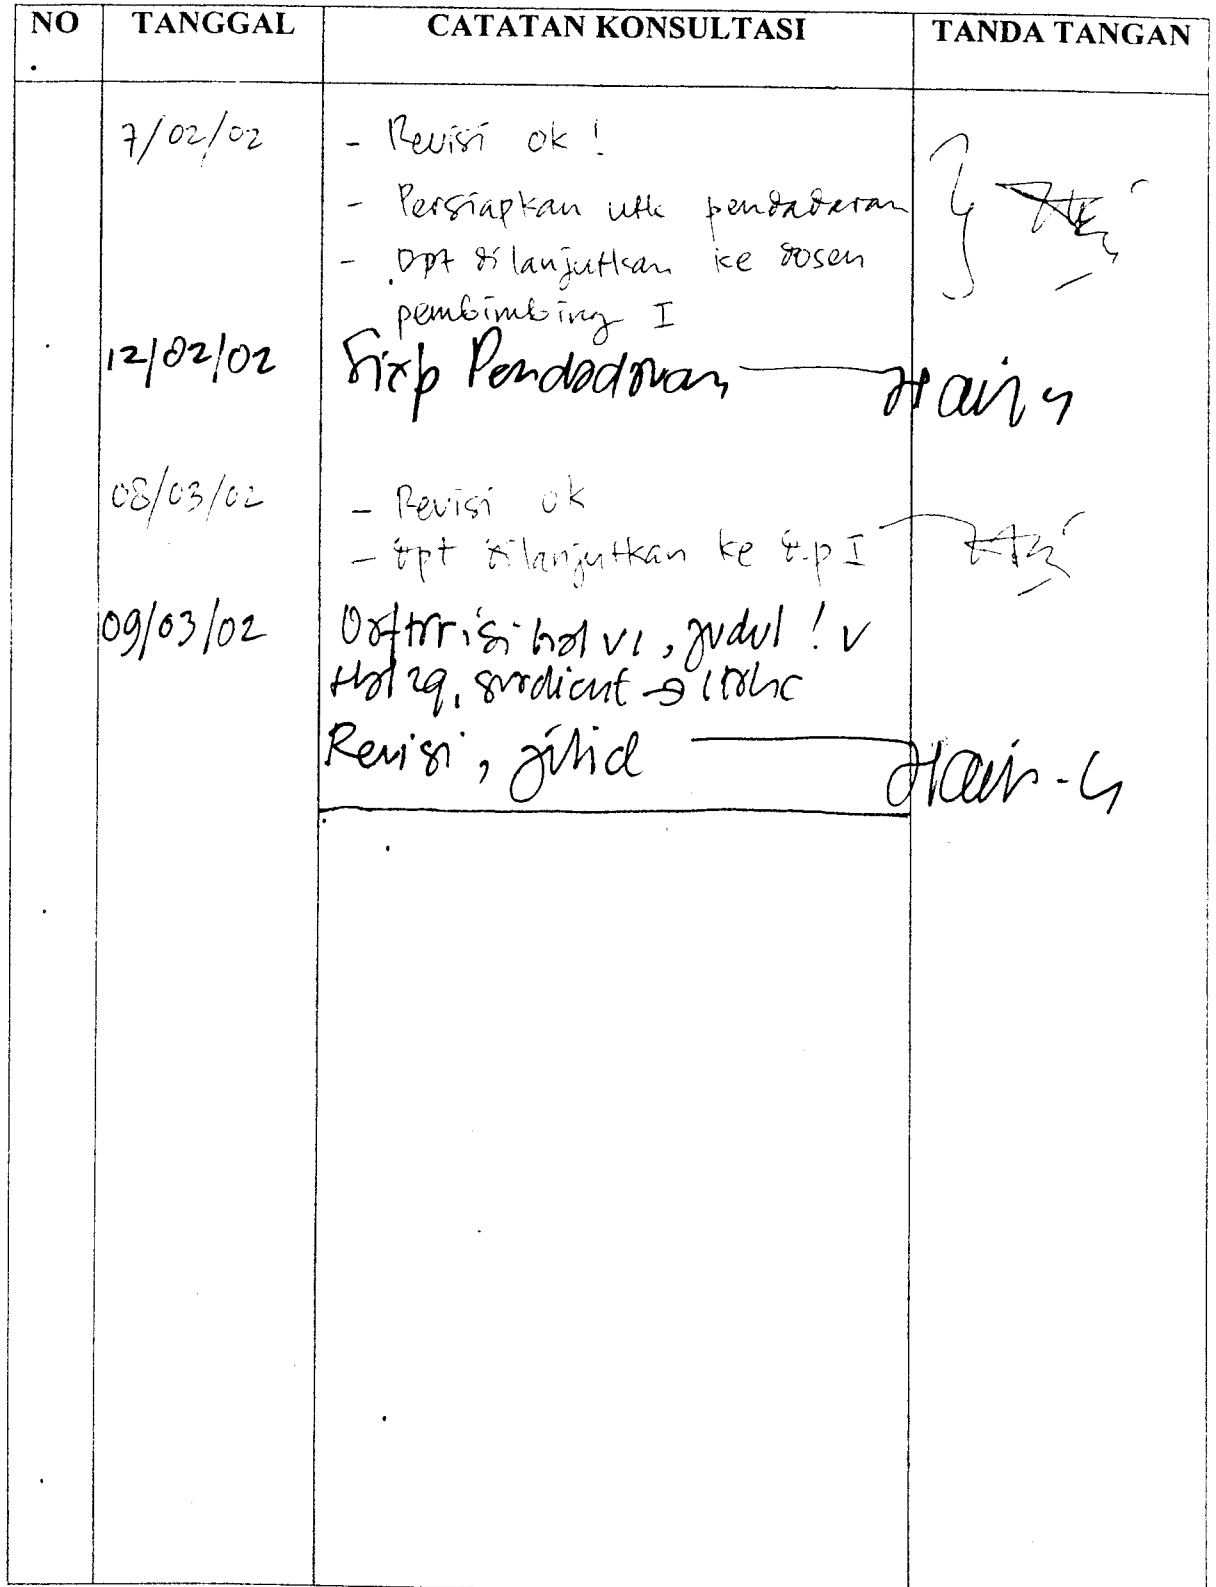 NO. TANGGAL CATATAN KONSULTASI TANDA TANGAN
7/02/02 - Revisi ok !
- Persiapkan utk pendadaran
- Dpt dilanjutkan ke dosen
pembimbing I
12/02/02 Siap Pendadaran
08/03/02 - Revisi ok
- dpt dilanjutkan ke d.p I
09/03/02 Daftar isi hal vi, judul ! v
Hal 29, gradient →
Revisi, jilid